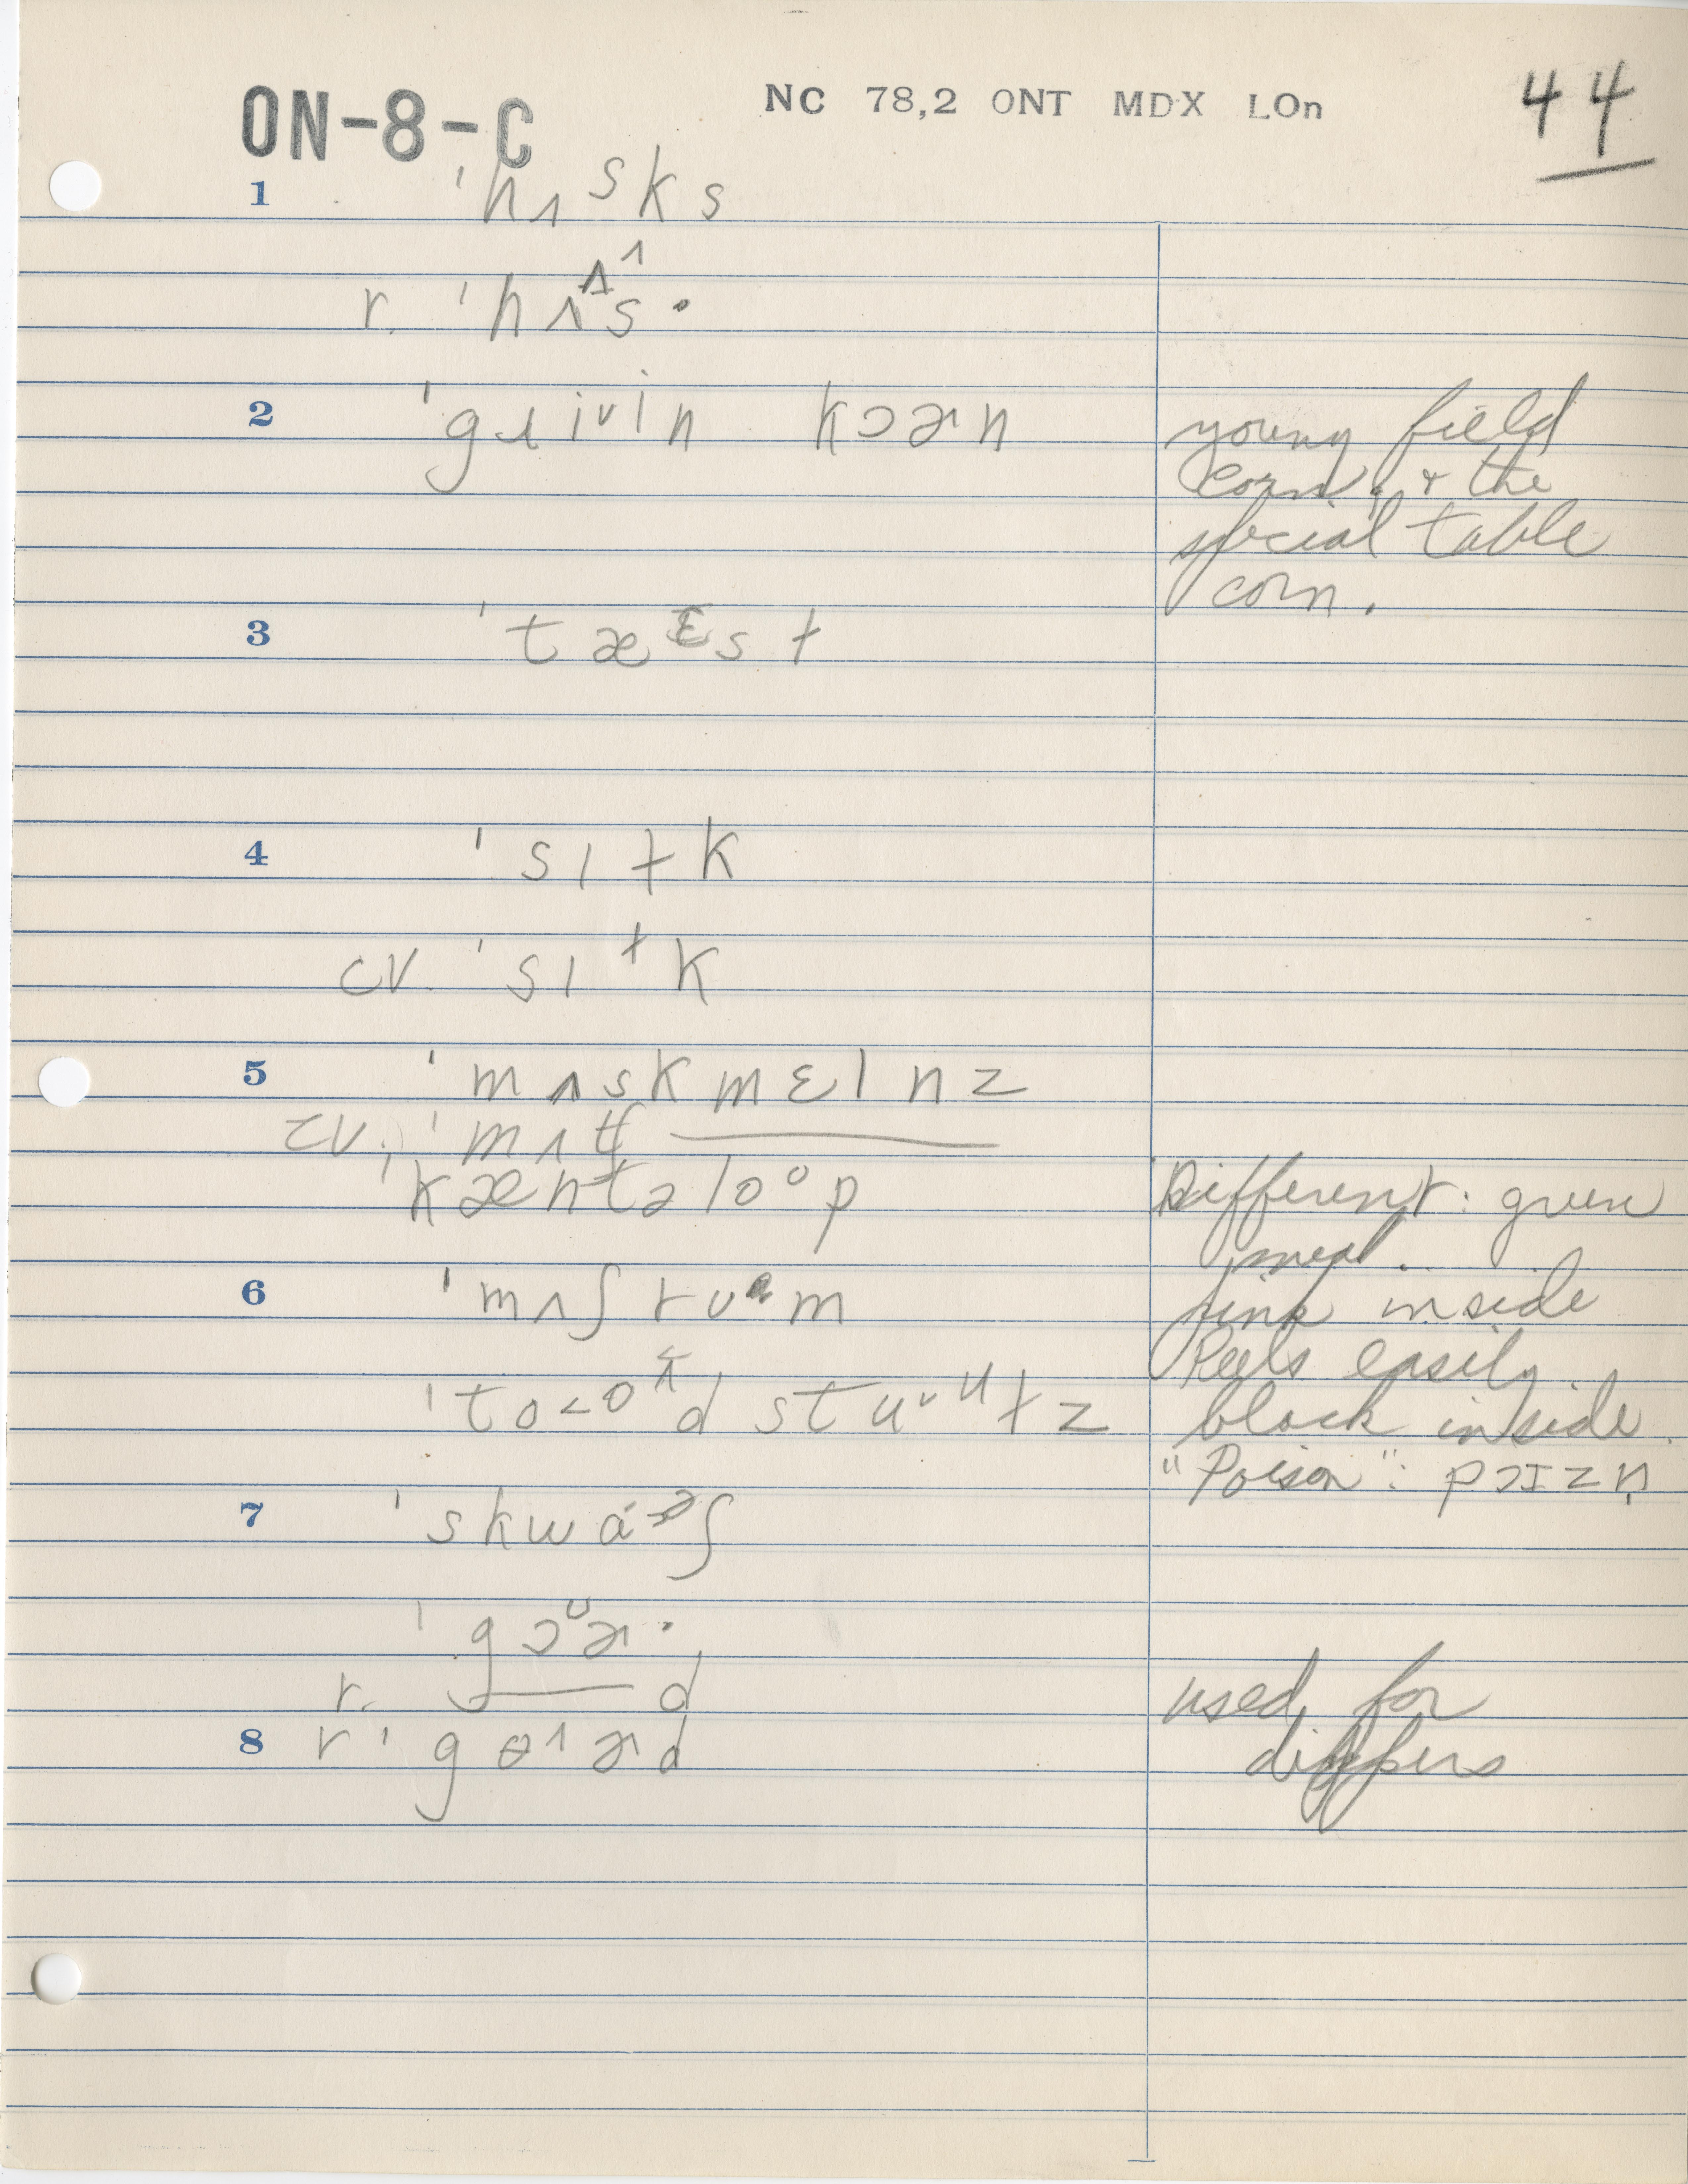 ON-8-C NC 78,2 ONT MDX LOn 44
1 ˈhʌsks
r. ˈhʌs·
2 ˈgɹiᵛin kɔɚn young field
corn, & the
special table
corn.
3 ˈtæᵋst
4 ˈsɪtk
cv. ˈsɪᵗk
5 ˈmʌskmɛlnz
cv. ˈmʌʃ ———
ˈkæntəloᵒp Different: green
meat.
6 ˈmʌʃrum pink inside
Peels easily.
ˈto<oᵗd stuᵛᵘtz black inside.
"Poison": pɔɪzn̩
7 ˈskwɑ·ᵊʃ
ˈgɔᶷɚ·
r. ——— d used for
8 r ˈgɵ^ɚd dippers